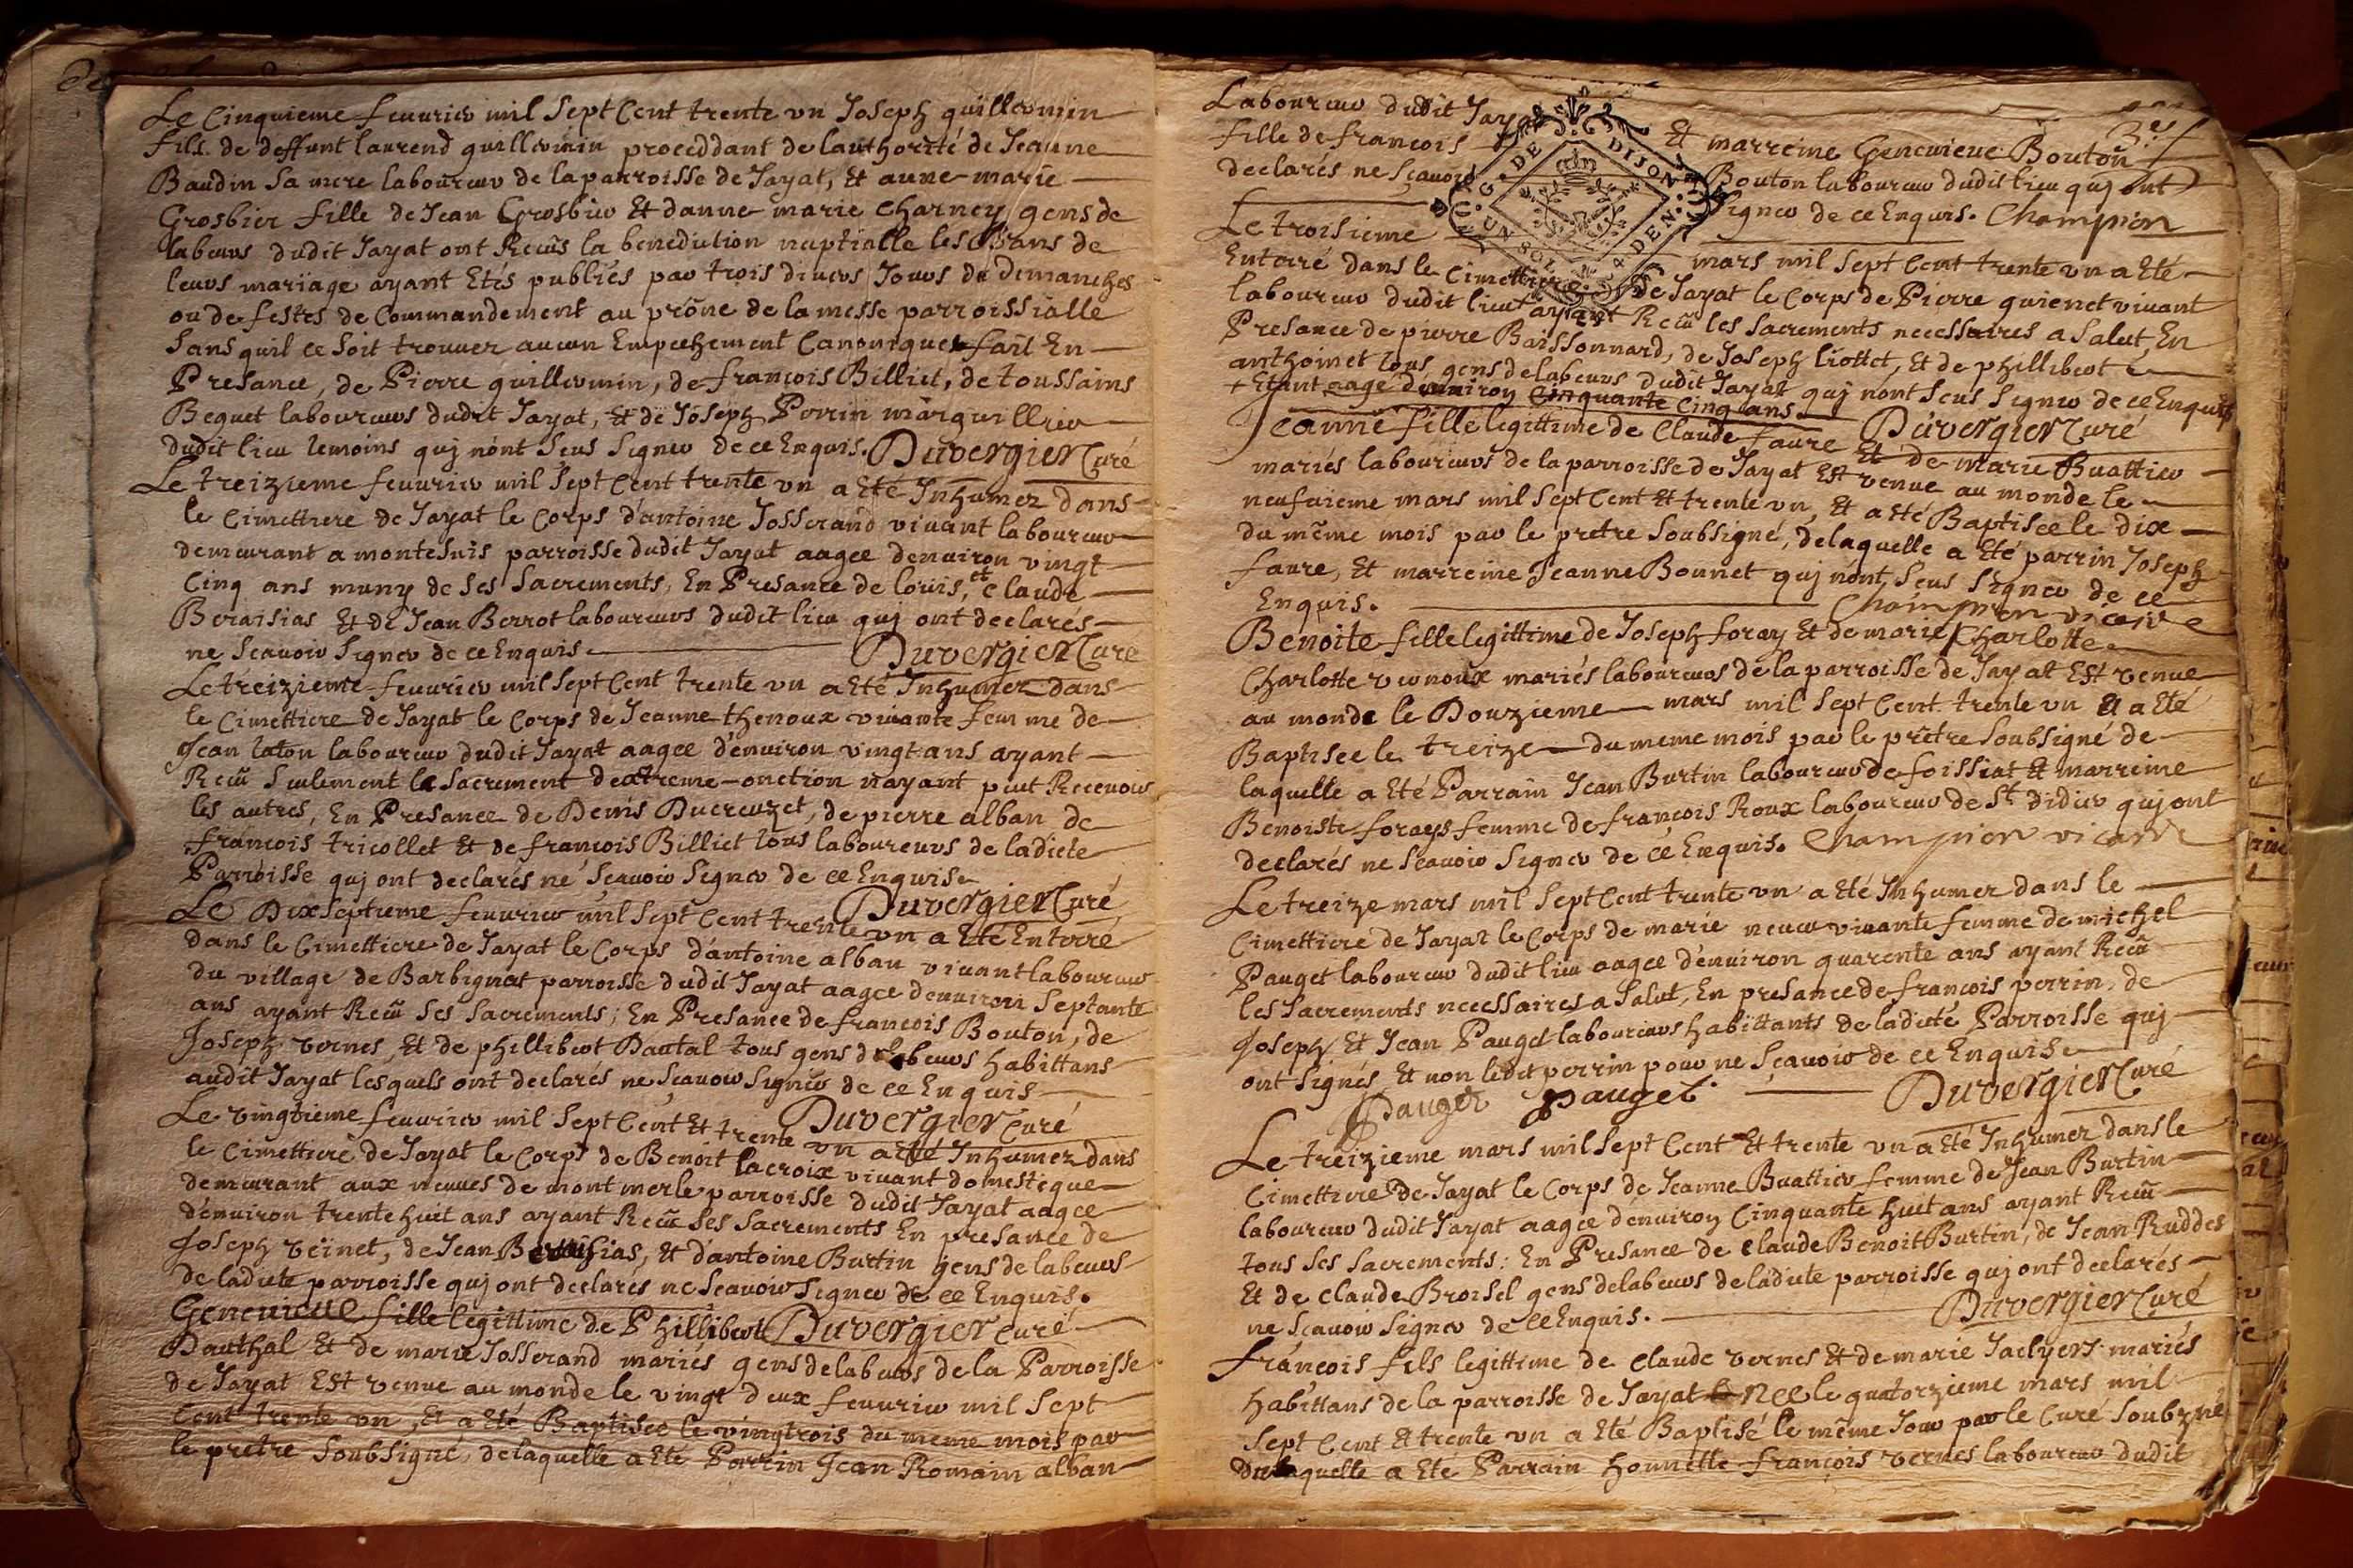 Le Cinquieme feuurier mil Sept Cent trente vn Joseph guillermin
fils de deffunt laurend guillermin proceddant de lauthorité de Jeanne
Baudin Sa mere laboureur de la parroisse de Jayat, Et anne marie
Grosbier fille de Jean Grosbier Et danne marie Charney gens de
labeurs dudit Jayat ont Recûs la benediction nuptialle les Bans de
leurs mariage ayant Etés publiés par trois divers Jours de Dimanches
ou de festes de Commandement au prône de la messe parroissialle
Sans quil ce Soit trouuer aucun Empechement Canonique fait En
Presance, de Pierre guillermin, de françois Billiet, de toussains
Bequet laboureurs dudit Jayat, Et de Joseph Perrin marguillier
dudit lieu temoins quj nont Sçus Signer de ce Enquis. Duvergier Curé
Le treizieme feuurier mil Sept Cent trente vn a Eté Inhumer dans
le Cimettiere de Jayat le Corps d'antoine Josserand viuant laboureur
demeurant a montesuis parroisse dudit Jayat aagee denuiron vingt
Cinq ans muny de Ses Sacrements, En Presance de louis, et Claude
Beraisias Et de Jean Berrot laboureurs dudit lieu quj ont declarés
ne Scauoir Signer de ce Enquis. Duvergier Curé
Le treizieme feuurier mil Sept Cent trente vn a Eté Inhumer dans
le Cimettiere de Jayat le Corps de Jeanne thenoux viuante femme de
Jean laton laboureur dudit Jayat aagee d'enuiron vingt ans ayant
Recû Seulement le Sacrement dextreme-onction n'ayant peut Receuoir
les autres, En Presance de Denis Ducreuzet, de pierre alban de
françois tricollet Et de françois Billiet tous laboureurs de ladicte
Parroisse quj ont declarés ne Sçauoir Signer de ce Enquis.
Duvergier Curé
Le Dixseptieme feuurier mil Sept Cent trente vn a Eté Enterré
dans le Cimettiere de Jayat le Corps d'antoine alban viuant laboureur
du village de Barbignat parroisse dudit Jayat aagee denuiron Septante
ans ayant Recû Ses Sacrements; En Presance de françois Bouton, de
Joseph vernes, Et de phillibert Dautal tous gens de labeurs habittans
audit Jayat lesquels ont declarés ne Sçauoir Signer de ce Enquis
Duvergier Curé
Le vingtieme feuurier mil Sept Cent Et trente vn a Eté Inhumer dans
le Cimettiere de Jayat le Corps de Benoit lacroix viuant domestique
demeurant aux meuues de montmerle parroisse dudit Jayat aagee
d'enuiron trente huit ans ayant Recû Ses Sacrements En presance de
Joseph veinet, de Jean Beraisias, Et d'antoine Burtin gens de labeurs
de ladicte parroisse quj ont declarés ne Scauoir Signer de ce Enquis.
Duvergier Curé
Geneuieue fille legittime de Phillibert
Dauthal Et de marie Josserand mariés gens de labeurs de la Parroisse
de Jayat Est venue au monde le vingt deux feuurier mil Sept
Cent trente vn, Et a Eté Baptisee le vingtrois du meme mois par
le prêtre Soubsigné, delaquelle a Eté Parrin Jean Romain alban
3es
Laboureur dudit Jayat Et marreine Geneuieue Bouton
fille de françois Bouton laboureur dudit lieu quj ont
declarés ne Sçauoir Signer de ce Enquis. Champion
G. DE DIJON
UN SOL 4 DEN.
Le troisieme mars mil Sept Cent trente vn a Eté
Enterré dans le Cimettiere de Jayat le Corps de Pierre guienet viuant
laboureur dudit lieu ayant Recû les Sacrements necessaires a Salut, En
Presance de pierre Baissonnard, de Joseph liottet, Et de phillibert
anthoinet tous gens de labeurs dudit Jayat quj nont Sçus Signer de ce Enquis
+ Etant aagé denuiron Cinquante Cinq ans. Duvergier Curé
Jeanne fille legittime de Claude faure Et de marie Buattier
mariés laboureurs de la parroisse de Jayat Est venue au monde le
neufuieme mars mil Sept Cent Et trente vn, Et a Eté Baptisee le dix
du même mois par le prêtre Soubsigné, delaquelle a Eté parrin Joseph
faure, Et marreine Jeanne Bonnet quj nont Sçus Signer de ce
Enquis. Champion vicaire
Benoite fille legittime de Joseph foray Et de marie Charlotte
Charlotte vernoux mariés laboureurs de la parroisse de Jayat Est venue
au monde le Douzieme mars mil Sept Cent trente vn Et a Eté
Baptisee le treize du meme mois par le prêtre Soubsigné de
laquelle a Eté Parrain Jean Burtin laboureur de foissiat Et marreine
Benoiste forays femme de françois Roux laboureur de St didier quj ont
declarés ne Scauoir Signer de ce Enquis. Champion vicaire
Le treize mars mil Sept Cent trente vn a Eté Inhumer dans le
Cimettiere de Jayat le Corps de marie viuante femme de michel
Pauget laboureur dudit lieu aagee d'enuiron quarente ans ayant Recû
les Sacrements necessaires a Salut, En presance de françois perrin, de
Joseph Et Jean Pauget laboureurs habittants de ladicte Parroisse quj
ont Signés Et non ledit perrin pour ne Sçauoir de ce Enquis.
Pauget Pauget Duvergier Curé
Le treizieme mars mil Sept Cent Et trente vn a Eté Inhumer dans le
Cimettiere de Jayat le Corps de Jeanne Buattier femme de Jean Burtin
laboureur dudit Jayat aagee d'enuiron Cinquante huit ans ayant Recû
tous Ses Sacrements: En Presance de Claude Benoit Burtin, de Jean Ruddes
Et de Claude Broisel gens de labeurs de ladicte parroisse quj ont declarés
ne Sçauoir Signer de ce Enquis. Duvergier Curé
françois fils legittime de Claude vernes Et de marie mariés
habittans de la parroisse de Jayat Nee le quatorzieme mars mil
Sept Cent Et trente vn a Eté Baptisé le même Jour par le Curé Soubzné
dulaquelle a Eté Parrain honnette françois vernes laboureur dudit